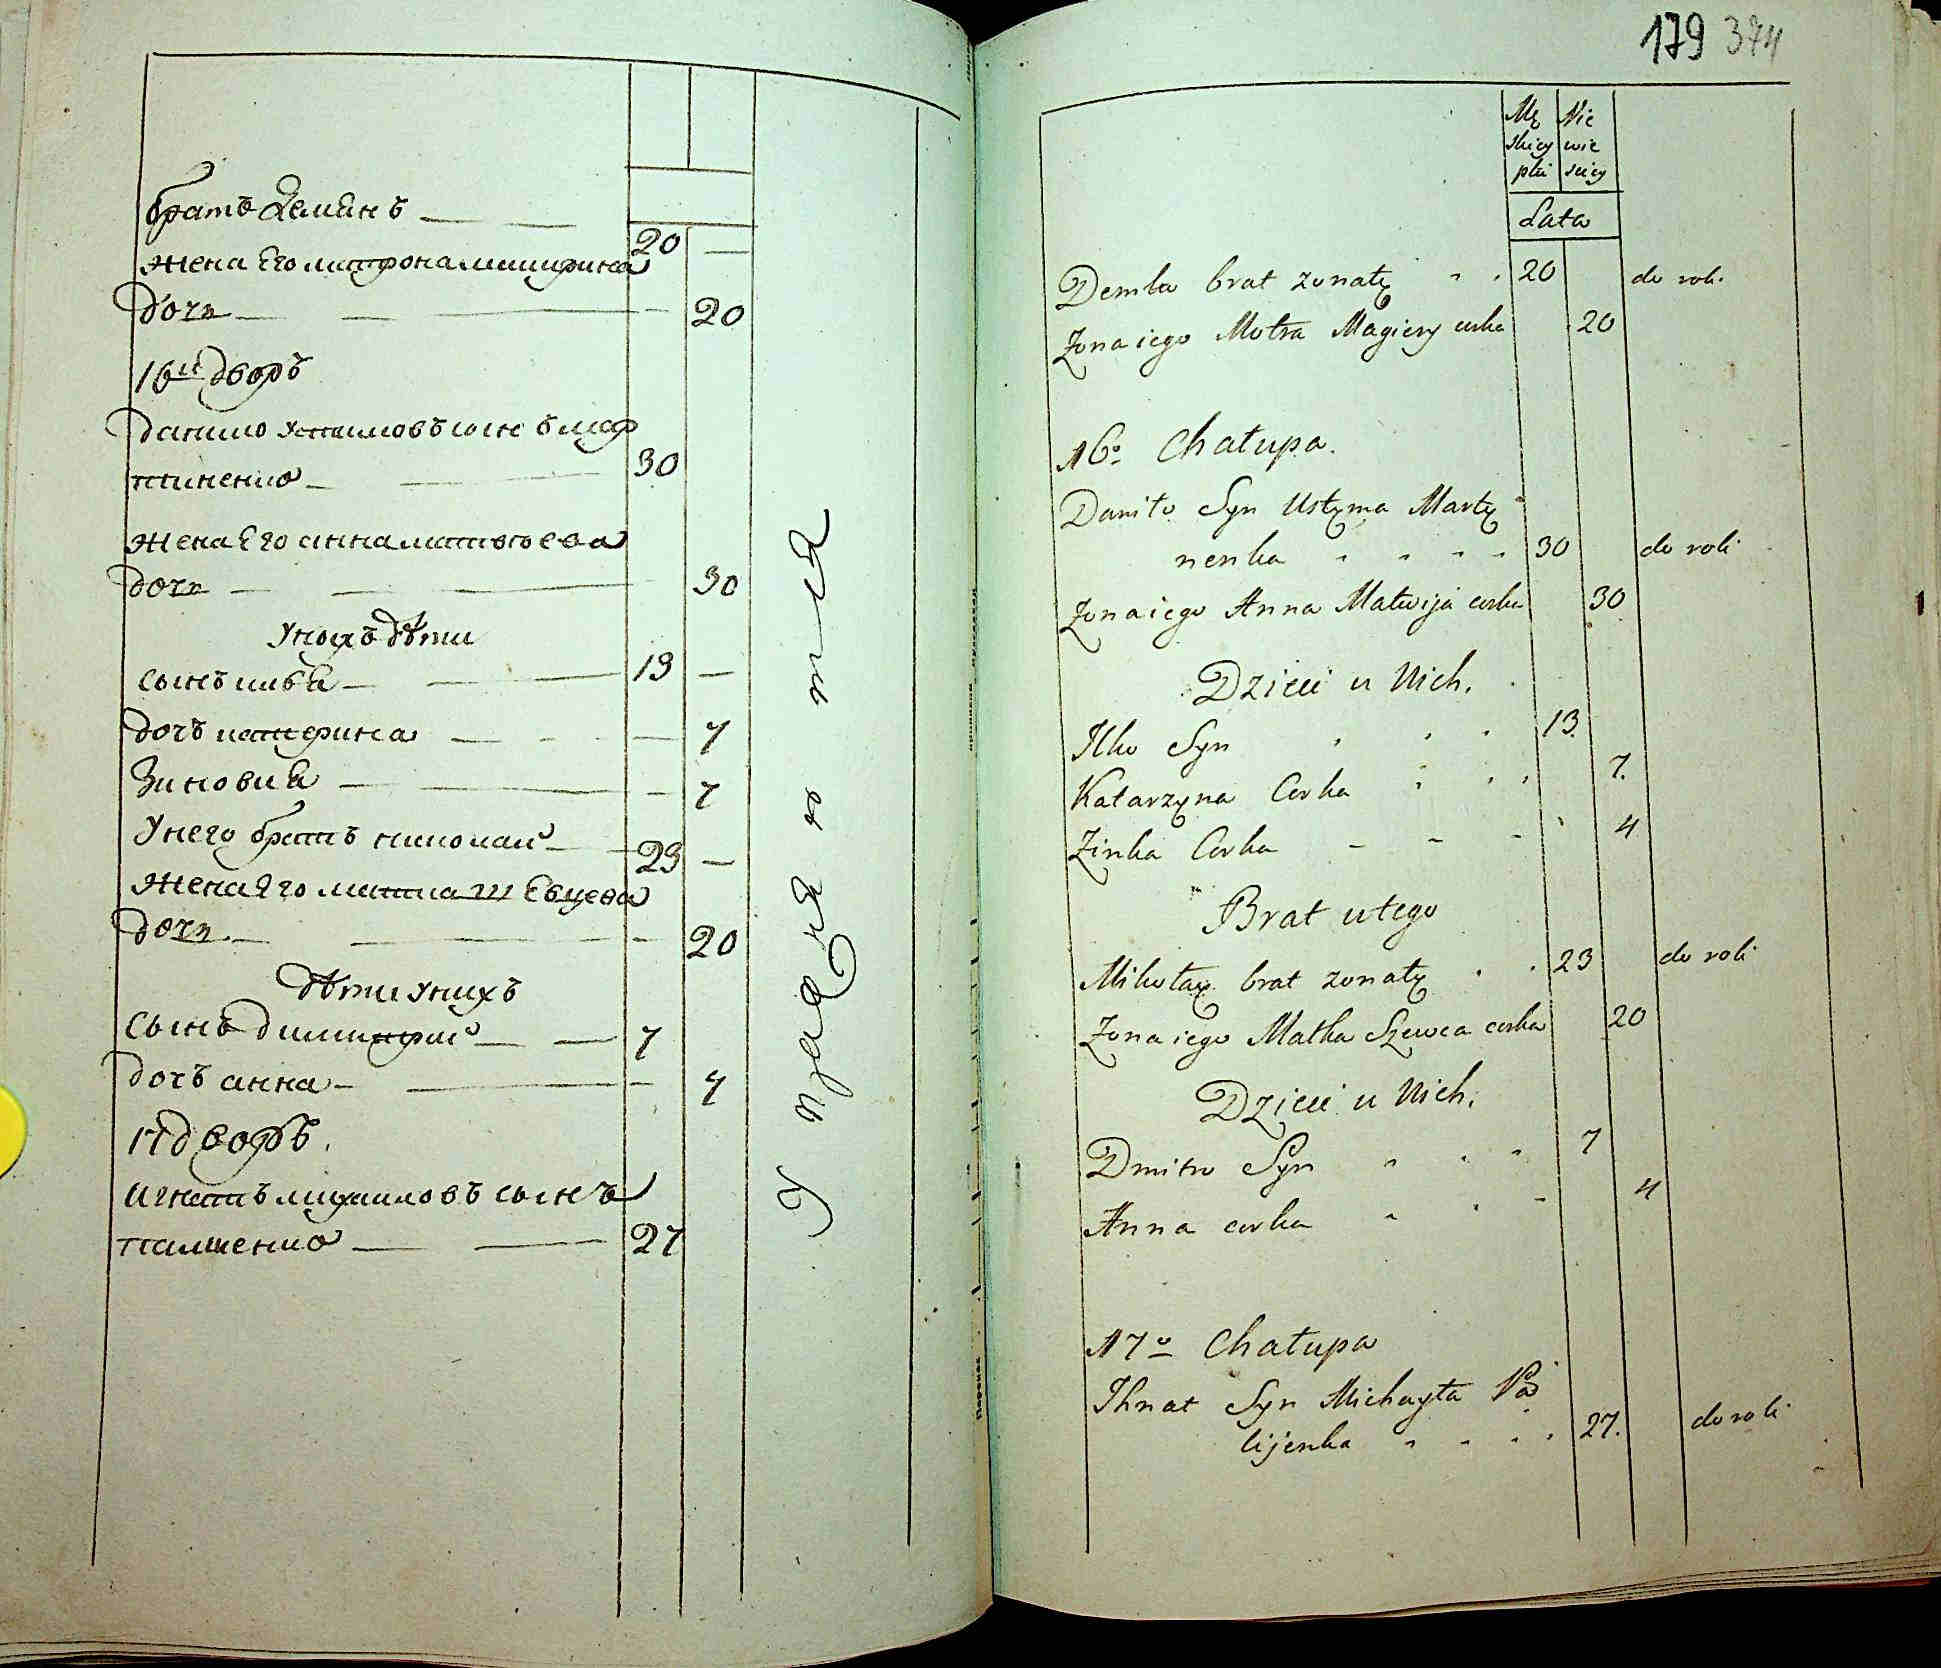 братъ Демянъ
20 —
жена Его матрона мацирина
дочь 20
16й дворъ
данило устимовъ сынъ мар
тиненко 30
жена Его анна матвѣева
дочь 30
у нихъ дѣти
сынъ илья 13 —
дочь катерина 7
Зиновия 7
У него братъ николай 23 —
жена Его Евцева
дочь 20
дѣти у нихъ
сынъ димитрий 7
дочь анна 4
17 дворъ
игнатъ михаиловъ сынъ
палиенко 27
У
179 374
Mę Nie
skiey wie
płci sciey
Lata
Demko brat zonaty 20 do roli
Zona iego Motra Magiery corka 20
16o Chatupa.
Daniło Syn Ustyma Marty
nenka 30 do roli
Zona iego Anna Matwija corka 30
Dzieci u Nich.
Ilko Syn 13.
Katarzyna Corka 7.
Zinka Corka 4
Brat u tego
Mikołay brat zonaty 23 do roli
Zona iego Matka Szewca corka 20
Dzieci u Nich.
Dmitro Syn 7
Anna corka 4
17o Chatupa
Ihnat Syn Michayła Pa
lijenka 27. do roli